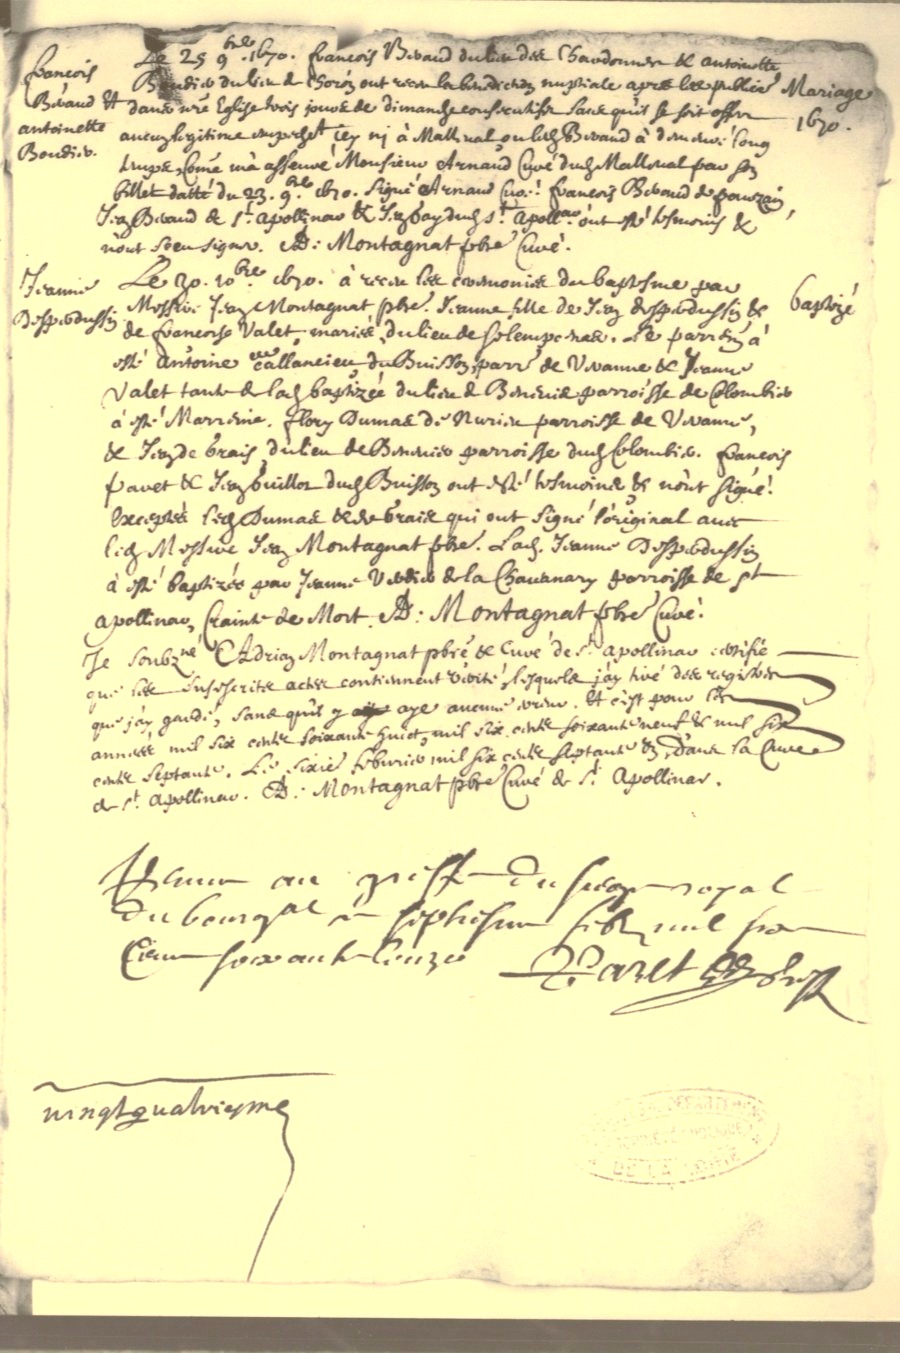 françois Bévaud & antoinette Boudier.
Mariage 1670.
Le 25 9bre 1670. françois Bévaud du lieu des Chardonnes & antoinette
du lieu de ont receu la benediction nuptiale apres les publiées
dans nre Eglise trois jours de dimanche consecutifs sans qu'il se soit offert
aucun legitime empeschet icy nj à Malleval, ou led Bévaud à demeuré long
temps, come m'a asseuré Monsieur Arnaud Curé dud Malleval par son
billet datté du 23. 9bre 1670. Signé Arnaud Curé. françois Bévaud de
Jean Bévaud de St. apollinar & Jean dud St. Apollar. ont esté tesmoins &
n'ont sceu signer. AD: Montagnat pbre Curé.
Jeanne Desperdussin
baptizé
Le 30. 10bre 1670. à receu les ceremonies du baptesme par
Messire Jean Montagnat pbre. Jeanne fille de Jean desperdussin &
de françoise Valet, mariés, du lieu de Solempenas. Le parrein à
esté Antoine Callancieu, du Buisson, parr. de Veranne & Jeanne
Valet tante de lad baptizée du lieu de parroisse de Colombier
à esté Marreine. flory Dumas de Nurieu parroisse de Veranne,
& Jean de brais, du lieu de parroisse dud Colombier. françois
favet & Jean buillot dud Buisson ont esté tesmoins & n'ont signé.
Exceptés lesd Dumas & de brais qui ont signé l'original avec
led Messire Jean Montagnat pbre. Lad. Jeanne Desperdussin
à esté baptizée par Jeanne Verdier de la Chavanary parroisse de St
Apollinar, Crainte de Mort. AD: Montagnat pbre Curé.
Je soubzné Adrian Montagnat pbre & Curé de St. apollinar certifie
que les susescrits actes contiennent verité, lesquels j'ay tiré des registres
que j'ay gardé, sans qu'il y aye aucune erreur. Et c'est pour les
années mil six cents soixante huict, mil six cents soixante neuf & mil six
cents septante. Le sixie feburier mil six cents septante & dans la Cure
de St. Apollinar. AD: Montagnat pbre Curé de St. Apollinar.
Remis au greffe du siege royal
du bourgal ce septiesme feb mil six
Cens soixante unze
vingtquatriesme
DE LA LOIRE